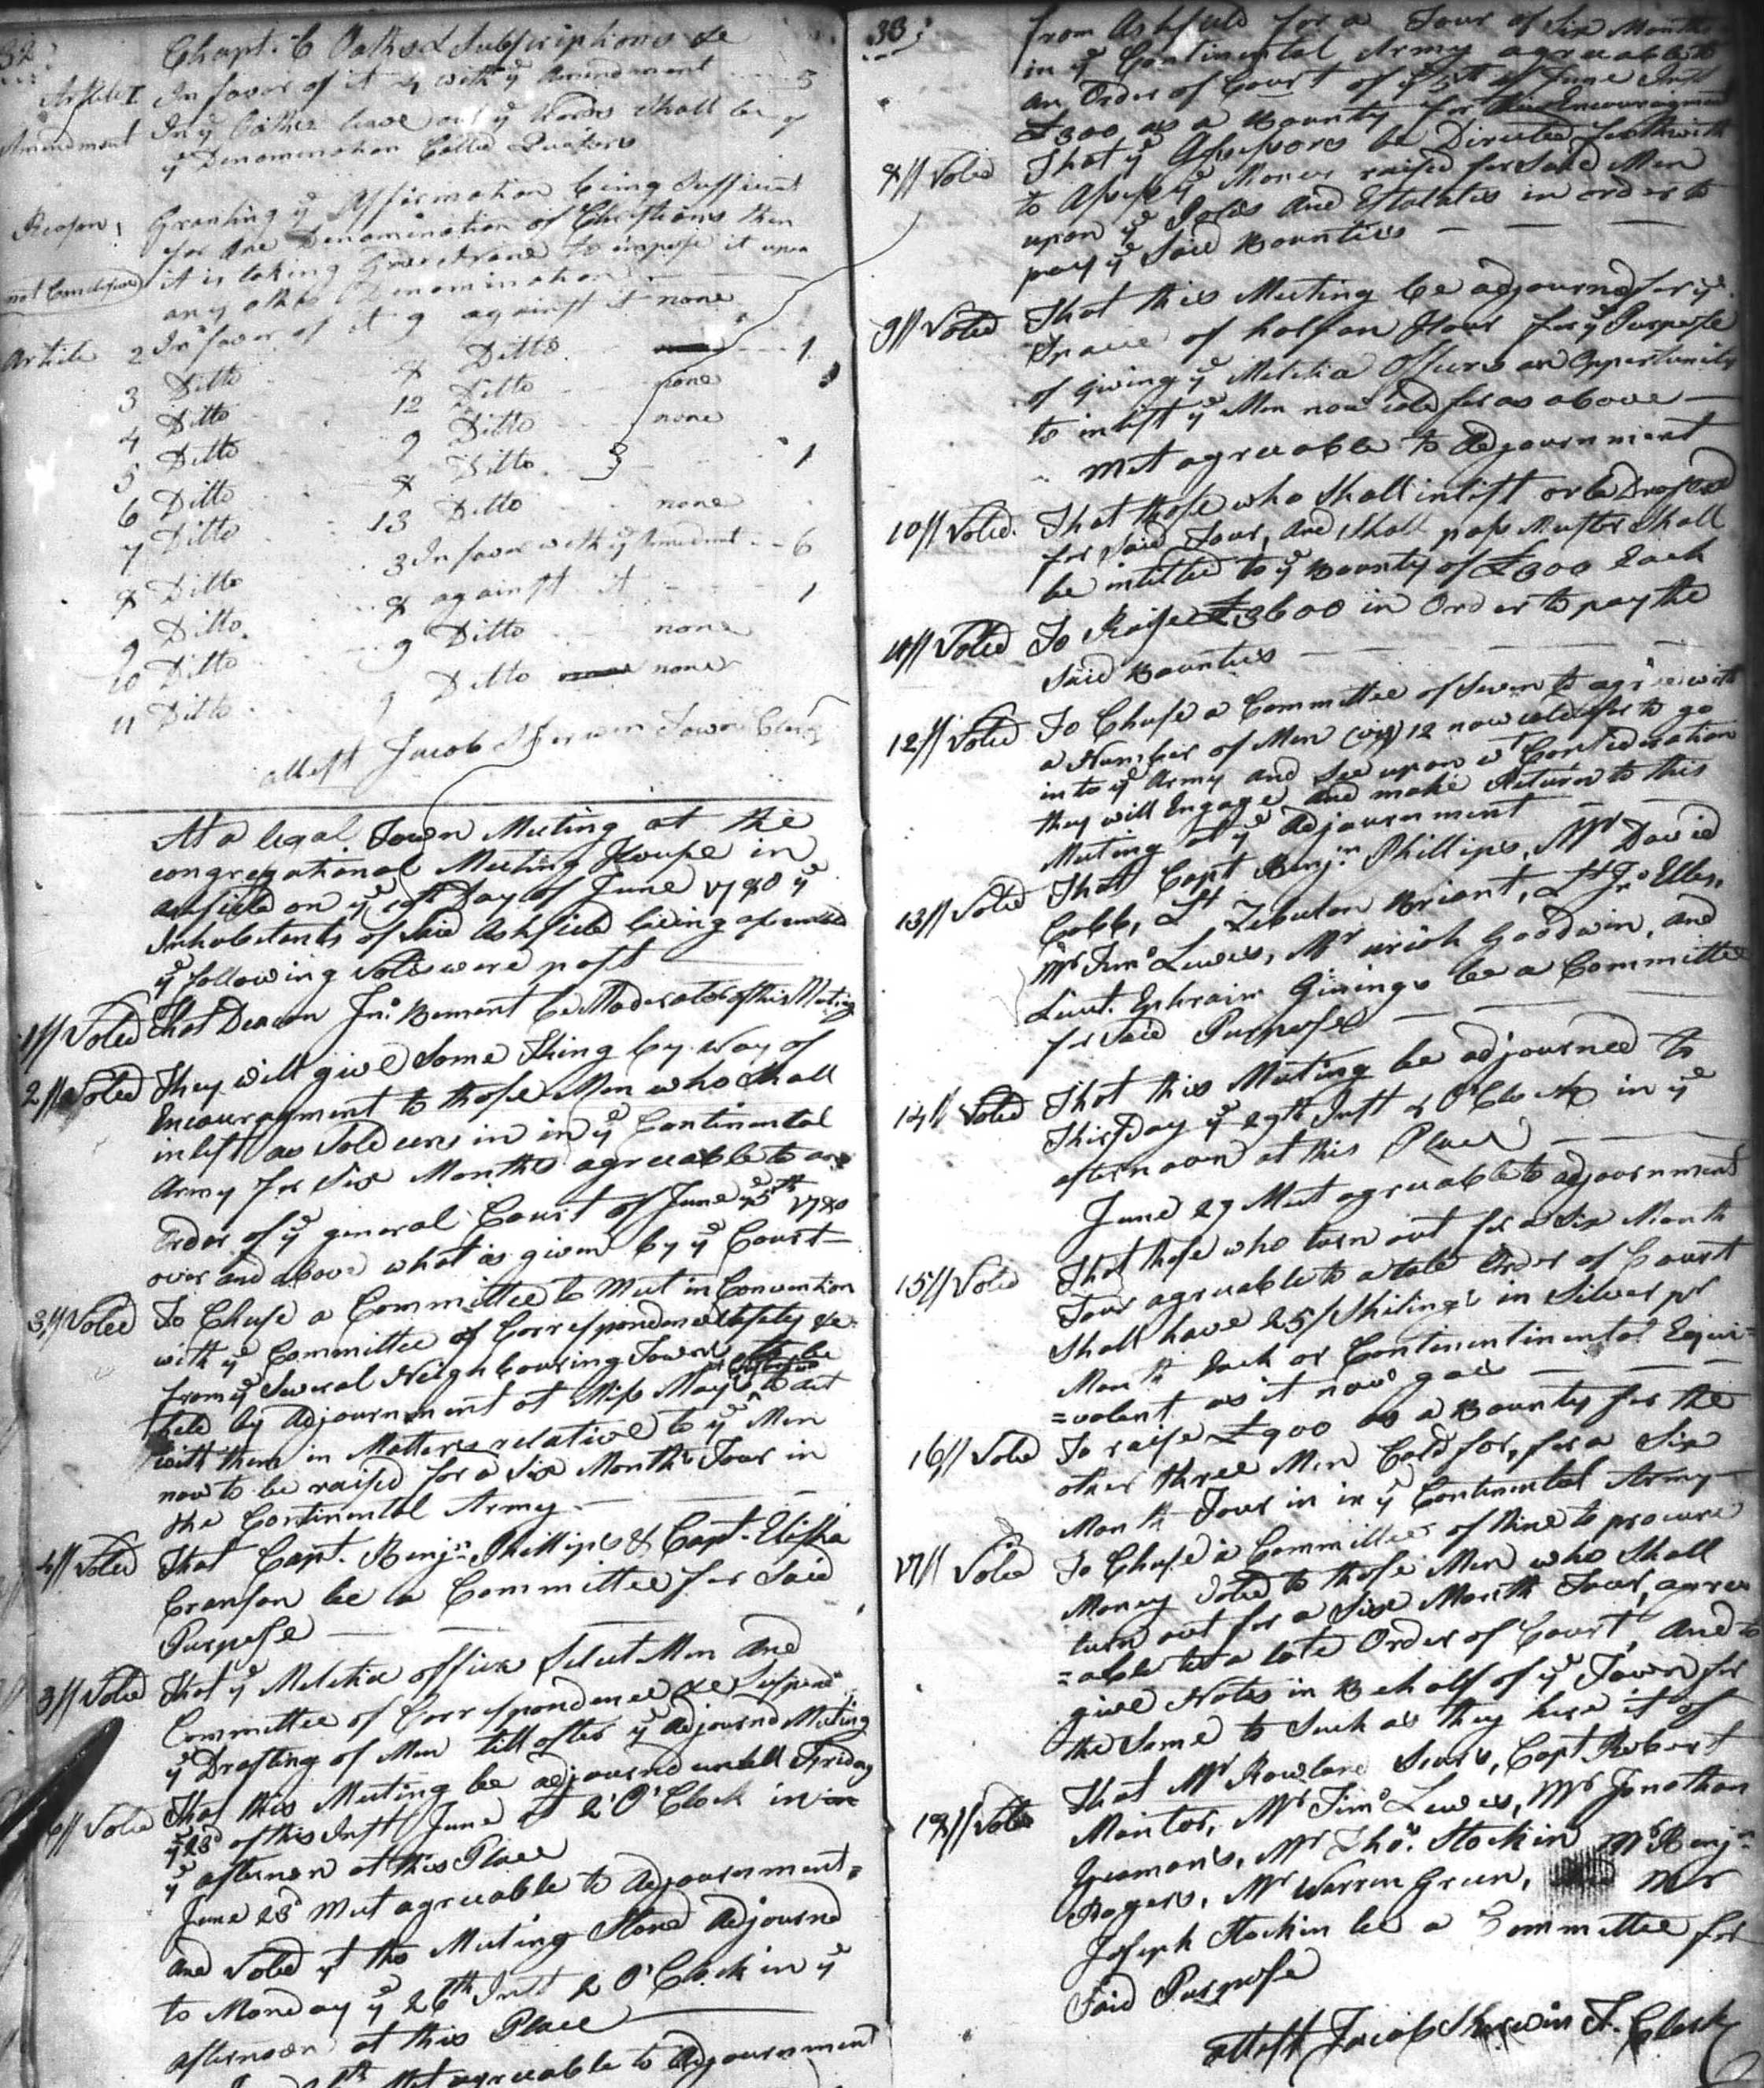 32
Chapt. 6 Oaths & Subscriptions &c
Article 1 In favor of it 4 with ye Amendment 5
Amendment In ye Oathes leave out ye words Shall be of
ye Denomination Called Quakers
Reason, Granting ye Affirmation being Sufficient
for one Denomination of Christians then
it is taking Greed to impose it upon
not Conclusive any other Denomination
Article 2 In favor of it 9 against it none
3 Ditto 8 Ditto 1
4 Ditto 12 Ditto none
5 Ditto 9 Ditto none
6 Ditto 8 Ditto 1
7 Ditto 13 Ditto none
8 Ditto 3 In favor with ye Amendment 6
9 Ditto 8 against it 1
10 Ditto 9 Ditto none
11 Ditto 9 Ditto none
attest Jacob Sherwin Town Clerk
At a legal Town Meeting at the
congregational Meeting House in
Ashfield on ye Day of June 1780 ye
Inhabetents of Said Ashfield being assembled
ye following Votes were past
1// Voted That Deacon Jno. Bement be Moderator of this Meeting
2// Voted They will give Some Thing by way of
Encouragment to those Men who Shall
inlist as Soldeers in in ye Continental
Army for Six Months agreeable to an
Order of ye general Court of June ye 5th 1780
over and above what is given by ye Court
3// Voted To Chuse a Committee to Meet in Convention
with ye Committee of Correspondence Safety &c
from ye Several Neighbouring Towns to be
held by Adjournment at Miss Mays to act
with them in Matters relative to ye Men
now to be raised for a Six Months Tour in
the Continental Army
4// Voted That Capt. Benjn. Phillips & Capt. Elisha
Cranson be a Committee for Said
Purpose
5// Voted That ye Melitia officers Select Men and
Committee of Correspondence &c Suspend
ye Drafting of Men till after ye adjournd Meeting
6// Voted That this Meeting be adjournd untill Friday
ye 23d of this Inst June at 2 O'Clock in
ye afternoon at this Place
June 23d Met agreeable to Adjournment
and Voted yt this Meeting Stand Adjournd
to Monday ye 26th Inst 2 O'Clock in ye
afternoon at this Place
Met agreeable to Adjournment
33
from Ashfield for a Tour of Six Months
in ye Continental Army agreeable to
an Order of Court of ye 5th of June Inst
£300 as a Bounty for their Encouragment
8// Voted That ye Assessors be Directed forthwith
to Assess ye Money raised for Said Men
upon ye Poles and Estates in order to
pay ye Said Bounties
9// Voted That this Meeting be adjournd for ye
Space of half an Hour for ye Purpose
of giving ye Melitia Officers an Opportunity
to inlist ye Men now cald for as above
Met agreeable to Adjournment
10// Voted That those who Shall inlist or be Drafted
for Said Tour, and Shall pass Muster Shall
be intitled to ye Bounty of £300 Each
11// Voted To Raise £3600 in Order to pay the
Said Bounties
12// Voted To Chuse a Committee of Seven to agree with
a Number of Men (viz) 12 now cald for to go
into ye Army and See upon wt Consideration
they will Engage and make Return to this
Meeting at ye Adjournment
13// Voted That Capt Benjn. Phillips, Mr David
Cobb, Lt Zebulon Briant, Lt Jno Ellis,
Mr Timo Lewes, Mr uriah Goodwin, and
Lieut. Ephraim Ginings be a Committee
for Said Purpose
14// Voted That this Meeting be adjourned to
Thirsday ye 29th Inst 2 O'Clock in ye
afternoon at this Place
June 29 Meet agreeable to adjournment
15// Voted That those who turn out for a Six Month
Tour agreeable to a late Order of Court
Shall have 25/ Shilings in Silver pr
Month Each or Continentinental Equi=
=volent as it now goes
16// Voted To raise £900 as a Bounty for the
other three Men Cald for, for a Six
Month Tour in in ye Continental Army
17// Voted To Chuse a Committee of Nine to procure
Money Voted to those Men who Shall
turn out for a Six Month Tour, agree
=able to a late Order of Court, and to
give Notes in Behalf of ye Town for
the Same to Such as they hire it of
18// Voted That Mr Rowland Sears, Capt Robert
Mantor, Mr Timo Lewes, Mr Jonathan
Yeamans, Mr Thos. Stockin Mr Benjn.
Rogers, Mr Warren Green, Mr
Joseph Stockin be a Committee for
Said Purpose
attest Jacob Sherwin T. Clerk